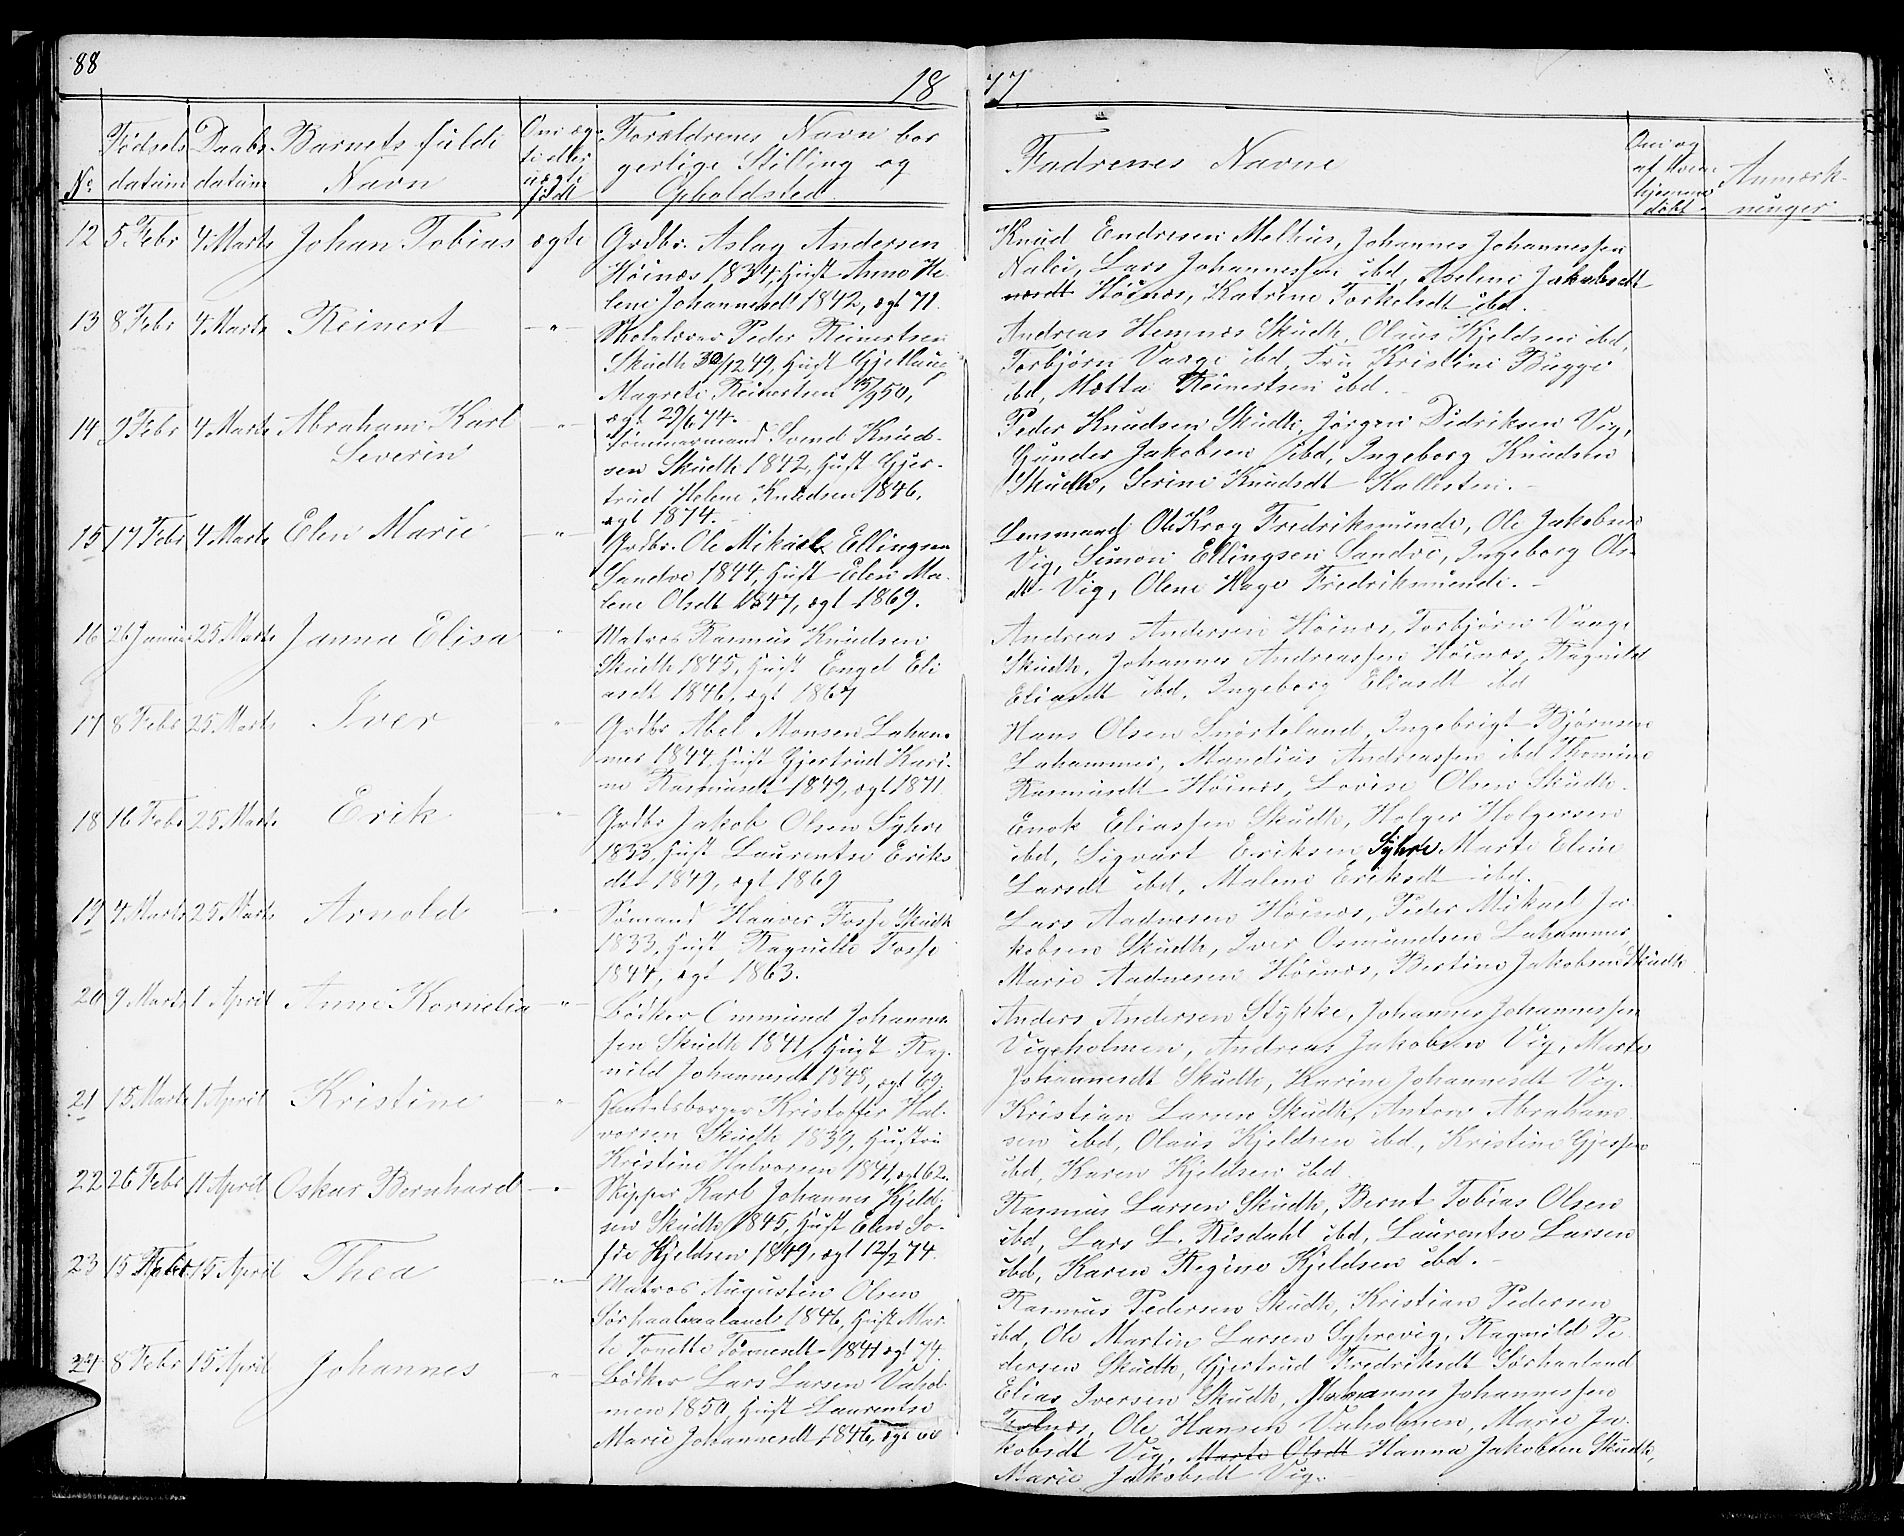 88
1877
No
Fødsels datum
Daabs datum
Barnets fulde Navn
Om ægte eller uægte født
Forældrenes Navn borgerlige Stilling og Opholdsted.
Fadrenes Navne
Om og af Hvem hjemmedøbt
Anmærkninger
12 5 Febr 4 Marts Johan Tobias ægte Grdbr. Aslag Andersen
Høinæs 1834, Hust Anne He-
lene Johannesdt 1842, ægt 71.
Knud Endresen Melhus, Johannes Johannessen
Nalei, Lars Johannessen ibd, Aselene Jakobsdt
Høinæs, Katrine Torkelsdt ibd.
13 8 Febr 4 Marts Reinert -"- Skolelærer Peder Reinertsen
Skudh 30/12 49, Hust Gjethau
Magrete Reinertsen 15/9 50,
ægt 29/6 74.
Andreas Hemnæs Skudh, Olaus Kjeldsen ibd,
Torbjørn Vaage ibd, Fru Kristine Bugge
ibd, Mætta Reinertsen ibd.
14 9 Febr 4 Marts Abraham Karl
Severin -"- Tømmermand Svend Knud-
sen Skudh 1842, Hust Gjer-
trud Helene Knudsen 1846,
ægt 1874.
Peder Knudsen Skudh, Jørgen Didriksen Vig,
Gunder Jakobsen ibd, Ingeborg Knudsen
Skudh, Serine Knudsdt Kallesten.
15 17 Febr 4 Marts Elen Marie -"- Grdbr. Ole Mikael Ellingsen
Sandve 1844, Hust Elen Ma-
lene Olsdt 1847, ægt 1869.
Lensmand Ole Krog Fredriksmunde, Ole Jakobsen
Vig, Simon Ellingsen Sandve, Ingeborg Ols-
dt Vig, Olene Hage Fredriksmunde.
16 26 Januar 25 Marts Janna Elisa " Matros Rasmus Knudsen
Skudh 1845, Hust Engel Eli
asdt 1846, ægt 1867
Andreas Andersen Høinæs, Torbjørn Vaage
Skudh, Johannes Andreassen Høinæs, Ragnild
Eliasdt ibd, Ingeborg Eliasdt ibd
17 8 Febr 25 Marts Iver -"- Grdbr Abel Monsen Laham-
mer 1844, Hust Gjertrud Kari-
ne Rasmusdt 1849, ægt 1871.
Hans Olsen Snørteland, Ingebrigt Bjørnsen
Lahammer, Mandius Andreassen ibd Thomine
Rasmusdt Høinæs, Lovise Olsen Skudh.
18 16 Febr 25 Marts Erik -"- Grdbr Jakob Olsen Syhre
1833, Hust Laurentse Eriks
dt 1849, ægt 1869
Enok Eliassen Skudh, Holger Holgersen
ibd, Sigvart Eriksen Syhre Marte Eline
Larsdt ibd, Malene Eriksdt ibd.
19 4 Marts 25 Marts Arnold -"- Sømand Haaver Fosse Skudh
1833, Hust Ragnilde Fosse
1844, ægt 1863.
Lars Aadnesen Høinæs, Peder Mikael Ja-
kobsen Skudh, Iver Osmundsen Lahammer,
Marie Aadnesen Høinæs, Bertine Jakobsen Skudh
20 9 Marts 1 April Anne Kornelia -"- Bødker Ommund Johannes
sen Skudh 1841, Hust Rag-
nild Johannesdt 1848, ægt 69.
Anders Andersen Stykke, Johannes Johannessen
Vigeholmen, Andreas Jakobsen Vig, Marte
Johannesdt Skudh, Karine Johannesdt Vig.
21 15 Marts 1 April Kristine " Handelsborger Kristoffer Hal-
vorsen Skudh 1839, Hustru
Kristine Halvorsen 1841, ægt 62.
Kristian Larsen Skudh, Anton Abraham
sen ibd, Olaus Kjeldsen ibd, Kristine Gjessen
ibd, Karen Kjeldsen ibd.
22 26 Febr 11 April Oskar Bernhard -"- Skipper Karl Johannes Kjeld-
sen Skudh 1845, Hust Elen So-
fie Kjeldsen 1849, ægt 12/2 74.
Rasmus Larsen Skudh, Bernt Tobias Olsen
ibd, Lars L. Risdahl ibd, Laurentse Larsen
ibd, Karen Regine Kjeldsen ibd.
23 15 Febr 15 April Thea -"- Matros Augustin Olsen
Sørhaalvaaland 1846, Hust Mar-
te Tonette Tønnesdt 1841 ægt 74.
Rasmus Pedersen Skudh, Kristian Pedersen
ibd, Ole Martin Larsen Syhrevig, Ragnild Pe
dersen Skudh, Gjertrud Fredriksdt Sørhaaland
24 8 Febr 15 April Johannes -"- Bødker Lars Larsen Vahol-
men 1850, Hust Laurentse
Marie Johannesdt 1846, ægt
Elias Iversen Skudh, Johannes Johannessen
Ole Hansen Vaholmen, Marie Ja-
kobsdt Vig, Marte Olsdt Hanna Jakobsen Skudh,
Marie Jakobsdt Vig.